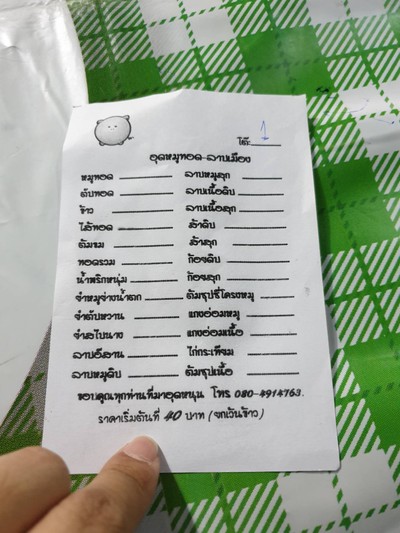 โต๊ะ. 1
อุดหมูทอด-ลาบเมือง
หมูทอด ลาบหมูสุก
ตับทอด ลาบเนื้อดิบ
ข้าว ลาบเนื้อสุก
ไส้ทอด ส้าดิบ
ต้มขม ส้าสุก
ทอดรวม ก้อยดิบ
น้ำพริกหนุ่ม ก้อยสุก
จำหมูจ่างน้ำตก ต้มซุปซี่โครงหมู
จำตับหวาน แกงอ่อมหมู
จำสไบนาง แกงอ่อมเนื้อ
ลาบอีสาน ไก่กระเทียม
ลาบหมูดิบ ต้มซุปเนื้อ
ขอบคุณทุกท่านที่มาอุดหนุน โทร 080-4914763.
ราคาเริ่มต้นที่ 40 บาท (ยกเว้นข้าว)